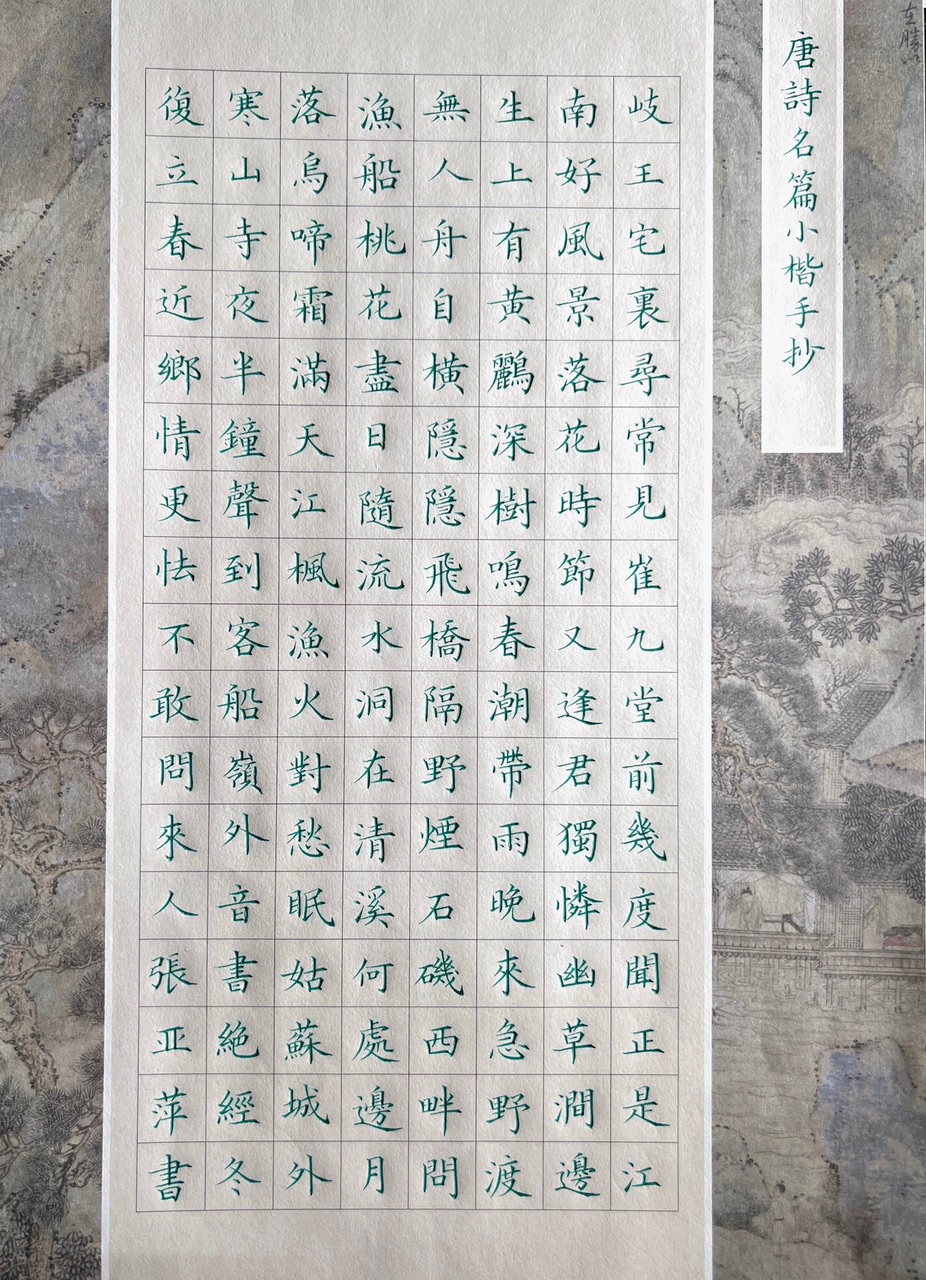 唐詩名篇小楷手抄
岐王宅裏尋常見崔九堂前幾度聞正是江
南好風景落花時節又逢君獨憐幽草澗邊
生上有黄鸝深樹鳴春潮帶雨晚來急野渡
無人舟自橫隱隱飛橋隔野煙石磯西畔問
漁船桃花盡日隨流水洞在清溪何處邊月
落烏啼霜滿天江楓漁火對愁眠姑蘇城外
寒山寺夜半鐘聲到客船嶺外音書絶經冬
復立春近鄉情更怯不敢問來人張亚萍書